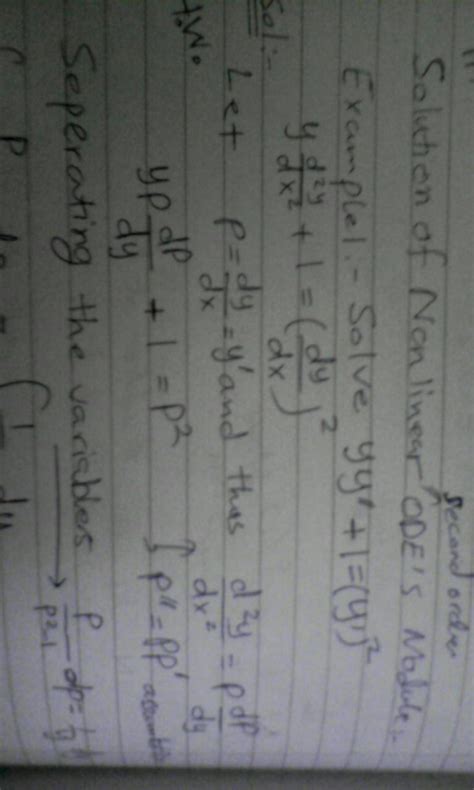 Solution of Nonlinear second order ODE's Module:-
Example1:- Solve yy'' + 1 = (y')²
Sol:-
y d²y/dx² + 1 = (dy/dx)²
Let p = dy/dx = y' and thus d²y/dx² = p dp/dy
H.W.
yp dp/dy + 1 = p² p'' = pp'
Seperating the variables → p/p²-1 dp = 1/y